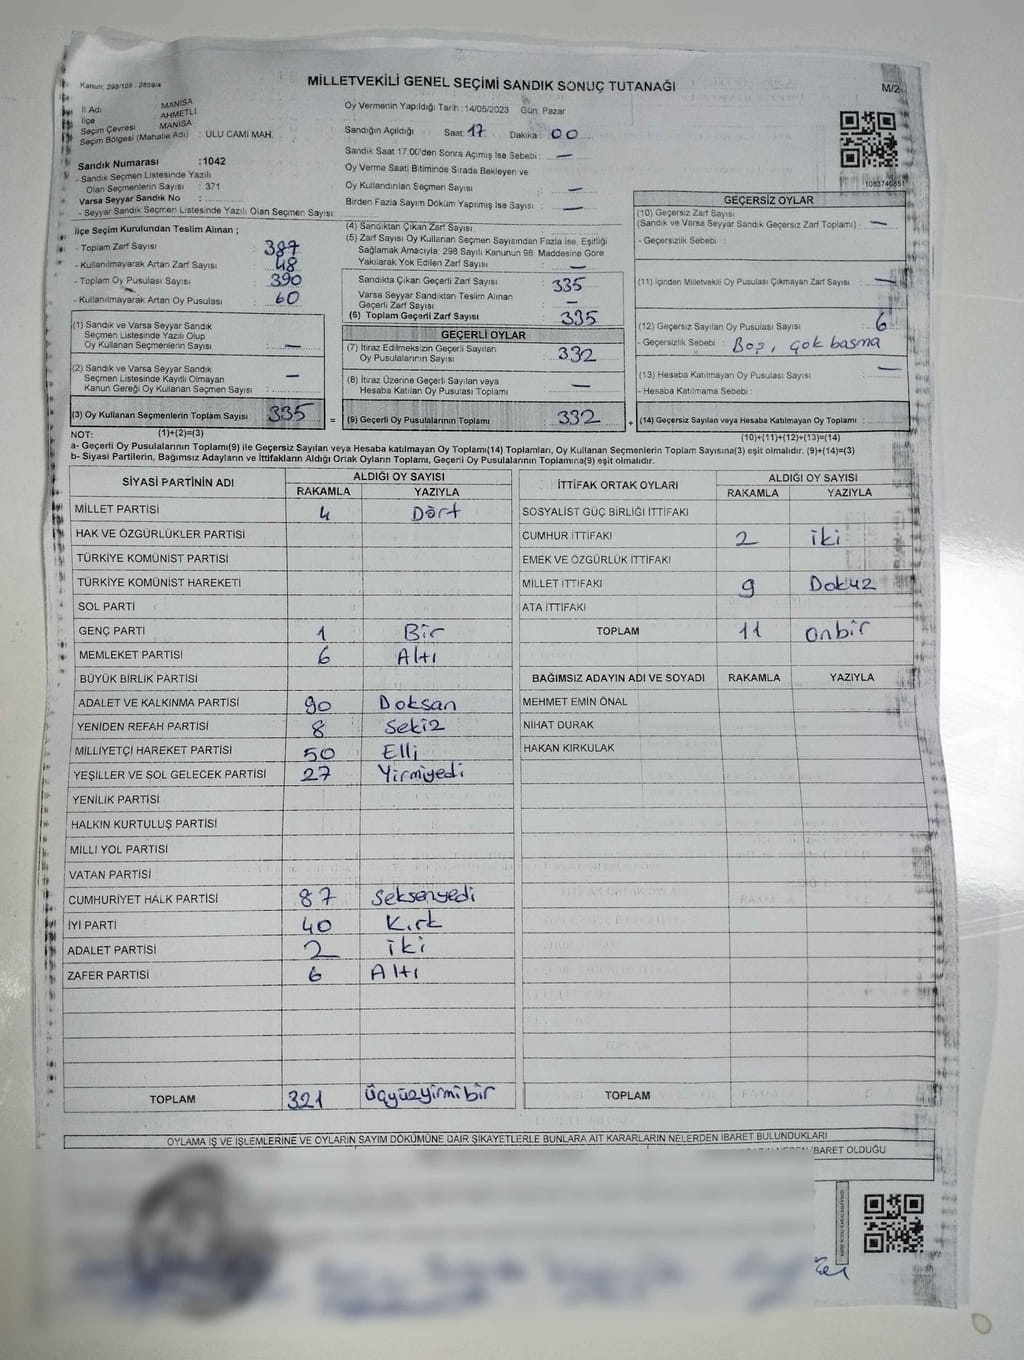 Kanun: 298/105 - 2839/4
MİLLETVEKİLİ GENEL SEÇİMİ SANDIK SONUÇ TUTANAĞI
M/2
İl Adı : MANİSA
İlçe : AHMETLİ
Seçim Çevresi : MANİSA
Seçim Bölgesi (Mahalle Adı) : ULU CAMİ MAH.
Sandık Numarası :1042
- Sandık Seçmen Listesinde Yazılı
Olan Seçmenlerin Sayısı : 371
Varsa Seyyar Sandık No :
- Seyyar Sandık Seçmen Listesinde Yazılı Olan Seçmen Sayısı:
Oy Vermenin Yapıldığı Tarih :14/05/2023 Gün: Pazar
Sandığın Açıldığı Saat: 17 Dakika : 00
Sandık Saat 17:00'den Sonra Açımış İse Sebebi : —
Oy Verme Saati Bitiminde Sırada Bekleyen ve
Oy Kullandırılan Seçmen Sayısı : —
Birden Fazla Sayım Döküm Yapılmış İse Sayısı : —
1083740851
İlçe Seçim Kurulundan Teslim Alınan ;
- Toplam Zarf Sayısı : 387
- Kullanılmayarak Artan Zarf Sayısı : 48
- Toplam Oy Pusulası Sayısı : 390
- Kullanılmayarak Artan Oy Pusulası : 60
(1) Sandık ve Varsa Seyyar Sandık
Seçmen Listesinde Yazılı Olup
Oy Kullanan Seçmenlerin Sayısı : —
(2) Sandık ve Varsa Seyyar Sandık
Seçmen Listesinde Kayıtlı Olmayan
Kanun Gereği Oy Kullanan Seçmen Sayısı : —
(3) Oy Kullanan Seçmenlerin Toplam Sayısı 335 =
(4) Sandıktan Çıkan Zarf Sayısı :
(5) Zarf Sayısı Oy Kullanan Seçmen Sayısından Fazla İse, Eşitliği
Sağlamak Amacıyla; 298 Sayılı Kanunun 98. Maddesine Göre
Yakılarak Yok Edilen Zarf Sayısı : —
Sandıkta Çıkan Geçerli Zarf Sayısı : 335
Varsa Seyyar Sandıktan Teslim Alınan
Geçerli Zarf Sayısı : —
(6) Toplam Geçerli Zarf Sayısı : 335
GEÇERLİ OYLAR
(7) İtiraz Edilmeksizin Geçerli Sayılan
Oy Pusulalarının Sayısı : 332
(8) İtiraz Üzerine Geçerli Sayılan veya
Hesaba Katılan Oy Pusulası Toplamı : —
(9) Geçerli Oy Pusulalarının Toplamı : 332 +
GEÇERSİZ OYLAR
(10) Geçersiz Zarf Sayısı
(Sandık ve Varsa Seyyar Sandık Geçersiz Zarf Toplamı) : —
- Geçersizlik Sebebi :
(11) İçinden Milletvekili Oy Pusulası Çıkmayan Zarf Sayısı : —
(12) Geçersiz Sayılan Oy Pusulası Sayısı : 6
- Geçersizlik Sebebi : Boş, çok basma
(13) Hesaba Katılmayan Oy Pusulası Sayısı : —
- Hesaba Katılmama Sebebi :
(14) Geçersiz Sayılan veya Hesaba Katılmayan Oy Toplamı :
NOT: (1)+(2)=(3) (10)+(11)+(12)+(13)=(14)
a- Geçerli Oy Pusulalarının Toplamı(9) ile Geçersiz Sayılan veya Hesaba katılmayan Oy Toplamı(14) Toplamları, Oy Kullanan Seçmenlerin Toplam Sayısına(3) eşit olmalıdır. (9)+(14)=(3)
b- Siyasi Partilerin, Bağımsız Adayların ve İttifakların Aldığı Ortak Oyların Toplamı, Geçerli Oy Pusulalarının Toplamına(9) eşit olmalıdır.
SİYASİ PARTİNİN ADI ALDIĞI OY SAYISI
RAKAMLA YAZIYLA
MİLLET PARTİSİ 4 Dört
HAK VE ÖZGÜRLÜKLER PARTİSİ
TÜRKİYE KOMÜNİST PARTİSİ
TÜRKİYE KOMÜNİST HAREKETİ
SOL PARTİ
GENÇ PARTİ 1 Bir
MEMLEKET PARTİSİ 6 Altı
BÜYÜK BİRLİK PARTİSİ
ADALET VE KALKINMA PARTİSİ 90 Doksan
YENİDEN REFAH PARTİSİ 8 Sekiz
MİLLİYETÇİ HAREKET PARTİSİ 50 Elli
YEŞİLLER VE SOL GELECEK PARTİSİ 27 Yirmiyedi
YENİLİK PARTİSİ
HALKIN KURTULUŞ PARTİSİ
MİLLİ YOL PARTİSİ
VATAN PARTİSİ
CUMHURİYET HALK PARTİSİ 87 Seksenyedi
İYİ PARTİ 40 Kırk
ADALET PARTİSİ 2 iki
ZAFER PARTİSİ 6 Altı
TOPLAM 321 üçyüzyirmibir
İTTİFAK ORTAK OYLARI ALDIĞI OY SAYISI
RAKAMLA YAZIYLA
SOSYALİST GÜÇ BİRLİĞİ İTTİFAKI
CUMHUR İTTİFAKI 2 iki
EMEK VE ÖZGÜRLÜK İTTİFAKI
MİLLET İTTİFAKI 9 Dokuz
ATA İTTİFAKI
TOPLAM 11 onbir
BAĞIMSIZ ADAYIN ADI VE SOYADI RAKAMLA YAZIYLA
MEHMET EMİN ÖNAL
NİHAT DURAK
HAKAN KIRKULAK
TOPLAM
OYLAMA İŞ VE İŞLEMLERİNE VE OYLARIN SAYIM DÖKÜMÜNE DAİR ŞİKAYETLERLE BUNLARA AİT KARARLARIN NELERDEN İBARET BULUNDUKLARI
İBARET OLDUĞU